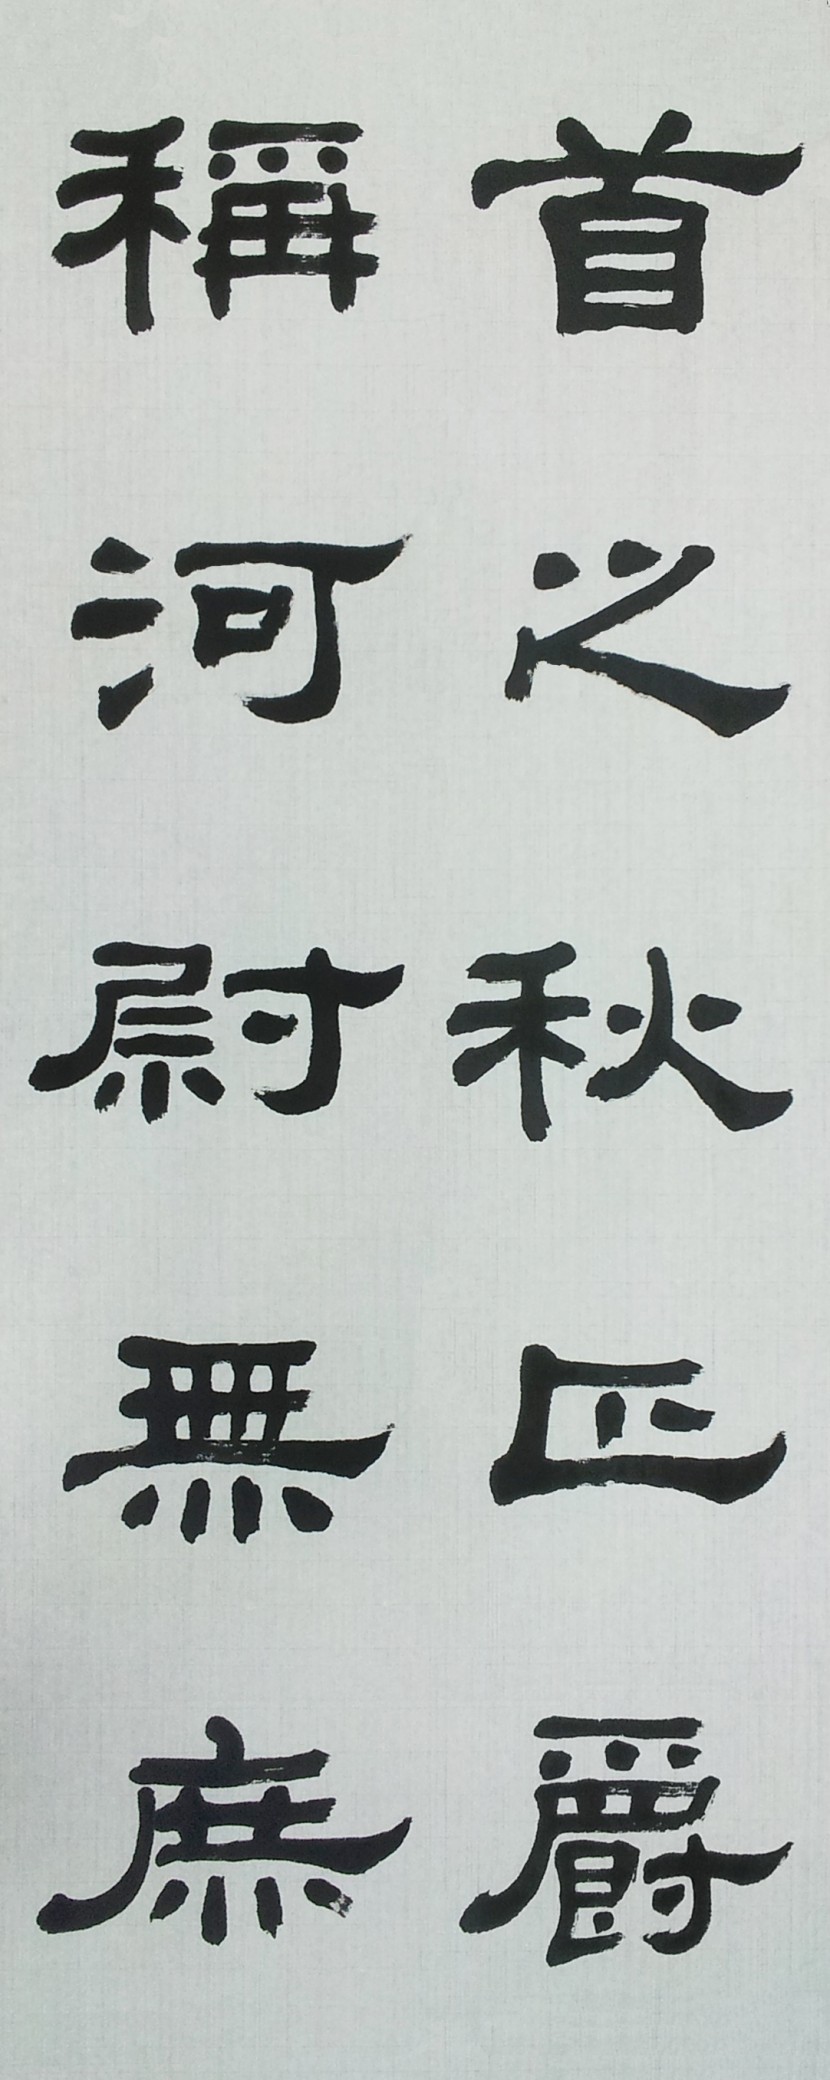 首之秋匹爵
稱河尉無庶